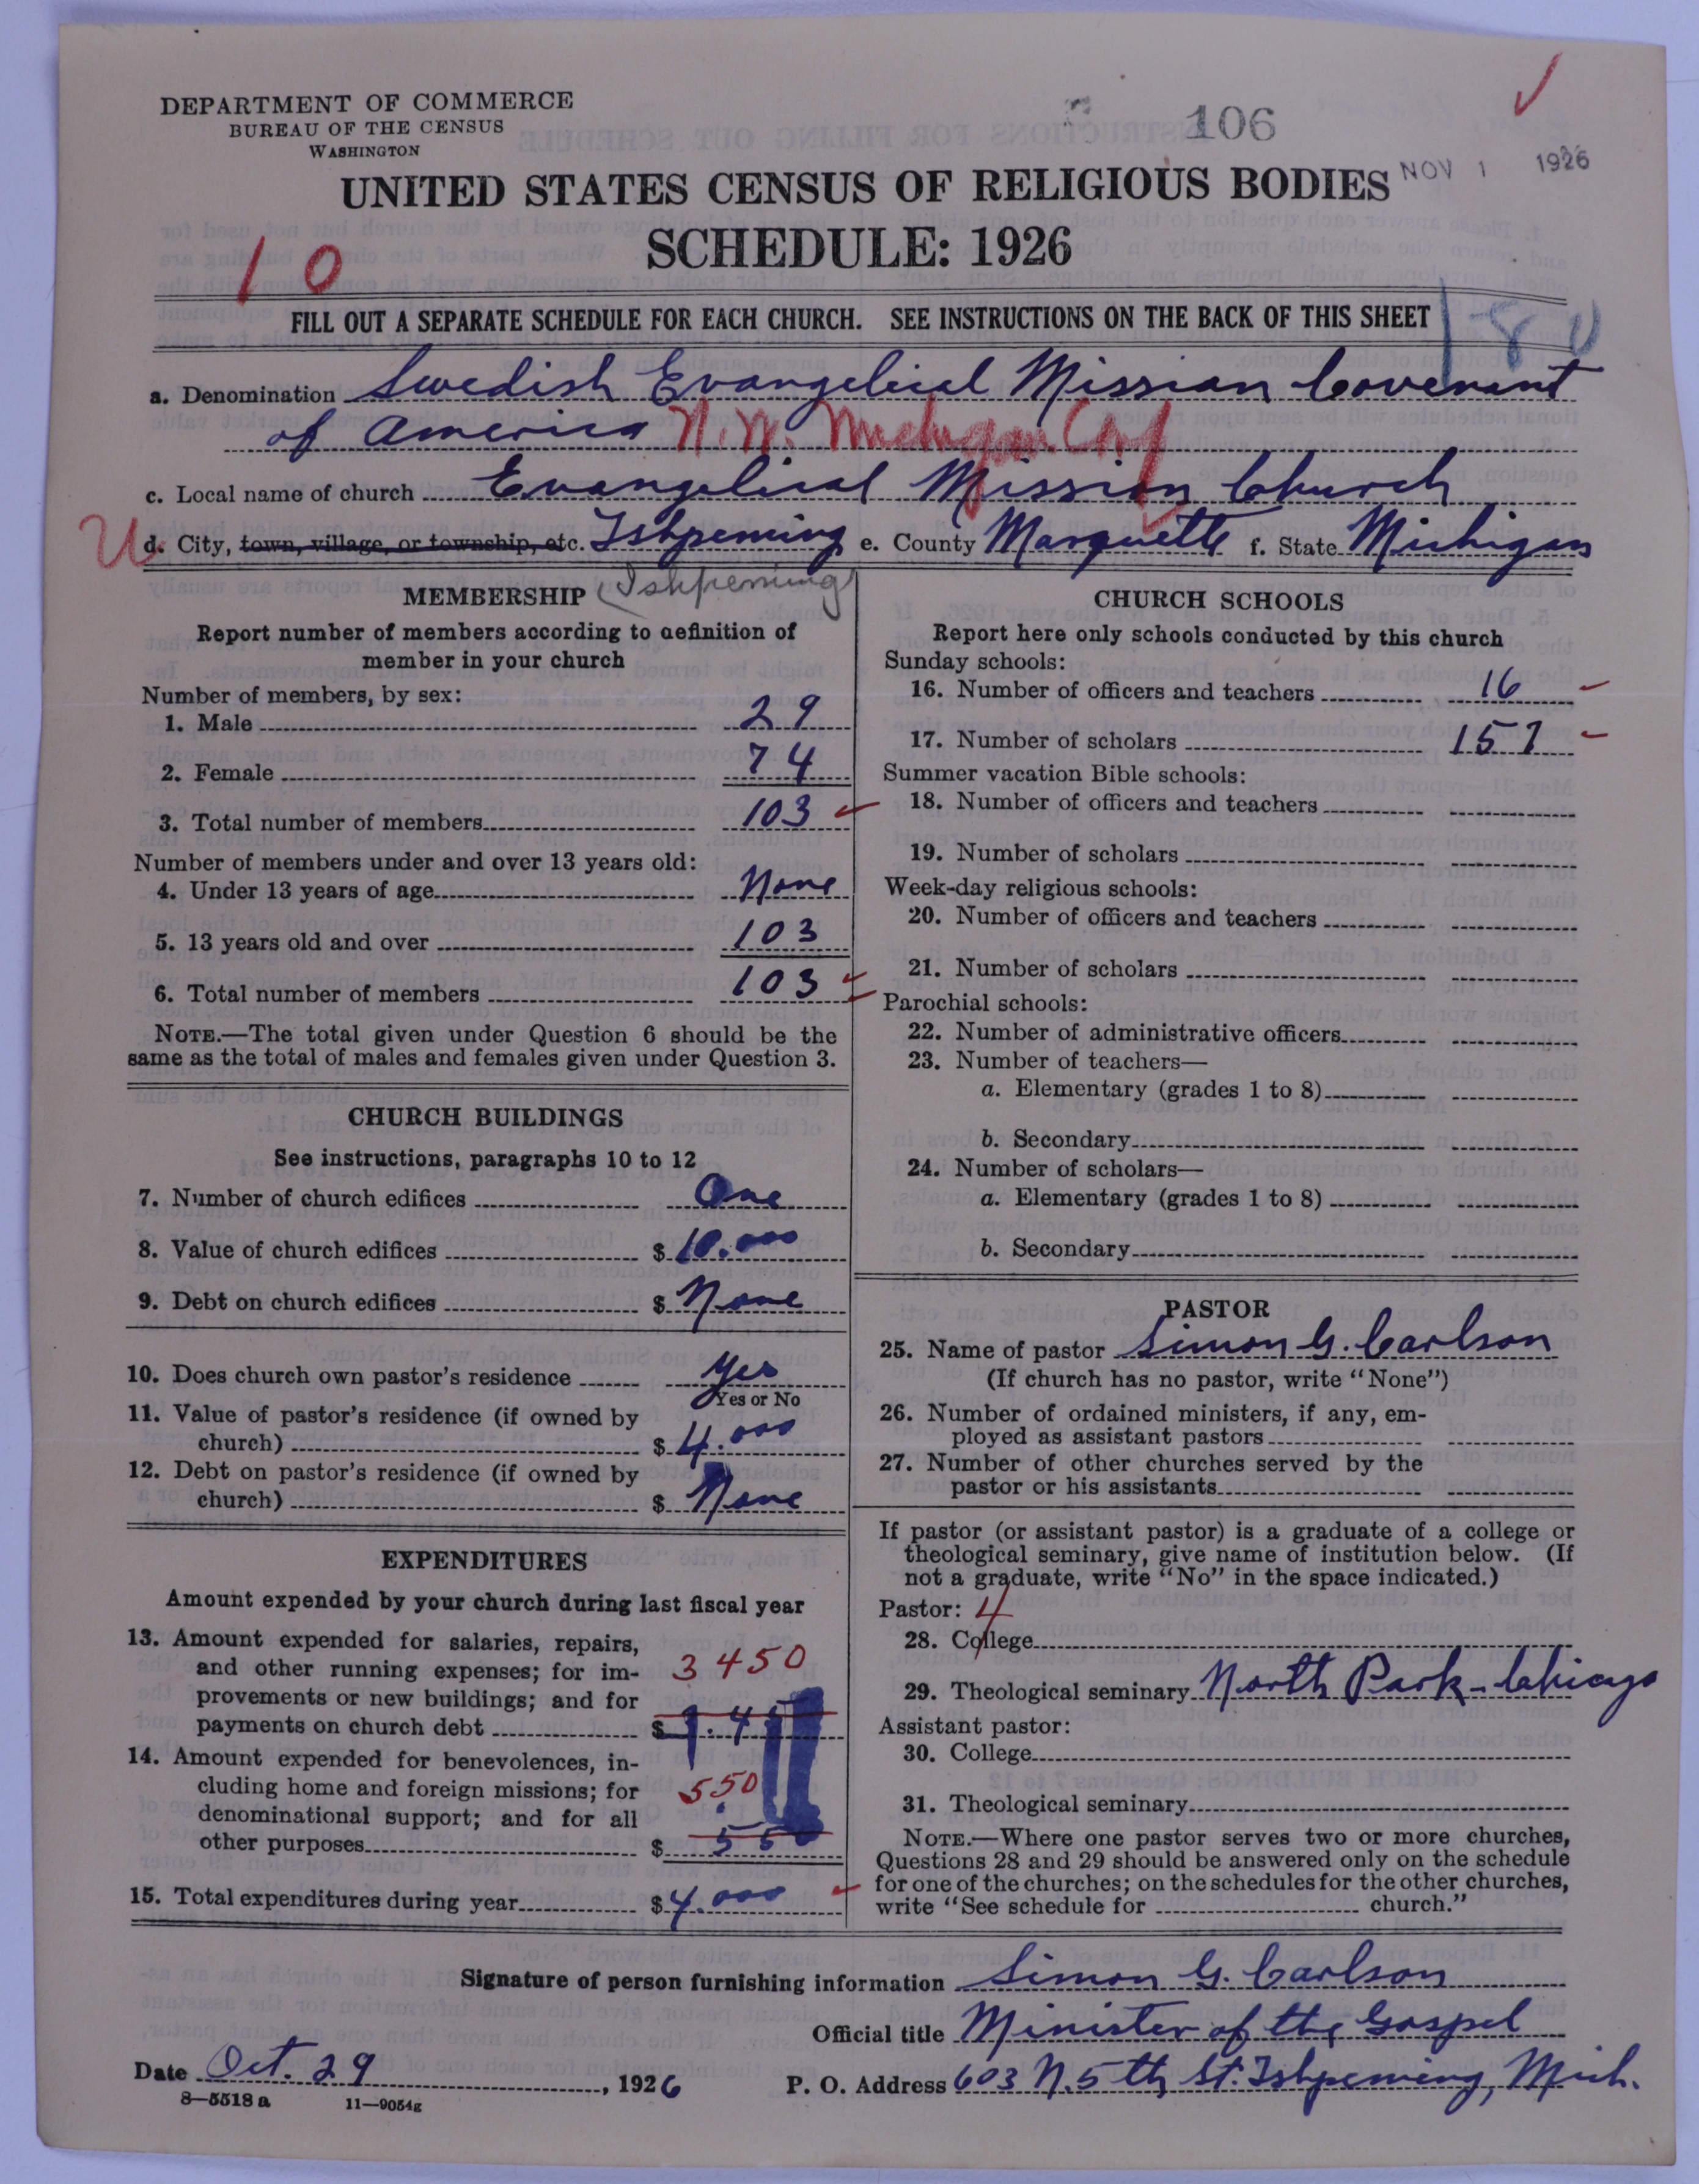 DEPARTMENT OF COMMERCE
BUREAU OF THE CENSUS
WASHINGTON
106
NOV 1 1926
UNITED STATES CENSUS OF RELIGIOUS BODIES
SCHEDULE: 1926
10
FILL OUT A SEPARATE SCHEDULE FOR EACH CHURCH. SEE INSTRUCTIONS ON THE BACK OF THIS SHEET
180
a. Denomination Swedish Evangelical Mission Covenant
of America N.W. Michigan Conf
c. Local name of church Evangelical Mission Church
U d. City, town, village, or township, etc. Ishpeming e. County Marquette f. State Michigan
(Ishpeming)
MEMBERSHIP
Report number of members according to definition of
member in your church
Number of members, by sex:
1. Male 29
2. Female 74
3. Total number of members 103
Number of members under and over 13 years old:
4. Under 13 years of age None
5. 13 years old and over 103
6. Total number of members 103
NOTE.—The total given under Question 6 should be the
same as the total of males and females given under Question 3.
CHURCH BUILDINGS
See instructions, paragraphs 10 to 12
7. Number of church edifices One
8. Value of church edifices $ 10.000
9. Debt on church edifices $ None
10. Does church own pastor's residence Yes
Yes or No
11. Value of pastor's residence (if owned by
church) $ 4.000
12. Debt on pastor's residence (if owned by
church) $ None
EXPENDITURES
Amount expended by your church during last fiscal year
13. Amount expended for salaries, repairs,
and other running expenses; for im-
provements or new buildings; and for
payments on church debt $ 3450
14. Amount expended for benevolences, in-
cluding home and foreign missions; for
denominational support; and for all
other purposes $ 550
15. Total expenditures during year $ 4.000
CHURCH SCHOOLS
Report here only schools conducted by this church
Sunday schools:
16. Number of officers and teachers 16
17. Number of scholars 157
Summer vacation Bible schools:
18. Number of officers and teachers
19. Number of scholars
Week-day religious schools:
20. Number of officers and teachers
21. Number of scholars
Parochial schools:
22. Number of administrative officers
23. Number of teachers—
a. Elementary (grades 1 to 8)
b. Secondary
24. Number of scholars—
a. Elementary (grades 1 to 8)
b. Secondary
PASTOR
25. Name of pastor Simon G. Carlson
(If church has no pastor, write "None")
26. Number of ordained ministers, if any, em-
ployed as assistant pastors
27. Number of other churches served by the
pastor or his assistants
If pastor (or assistant pastor) is a graduate of a college or
theological seminary, give name of institution below. (If
not a graduate, write "No" in the space indicated.)
Pastor: 4
28. College
29. Theological seminary North Park - Chicago
Assistant pastor:
30. College
31. Theological seminary
NOTE.—Where one pastor serves two or more churches,
Questions 28 and 29 should be answered only on the schedule
for one of the churches; on the schedules for the other churches,
write "See schedule for church."
Signature of person furnishing information Simon G. Carlson
Official title Minister of the Gospel
Date Oct. 29, 1926
P. O. Address 603 N. 5th St. Ishpeming, Mich.
8—5518 a 11—9054g